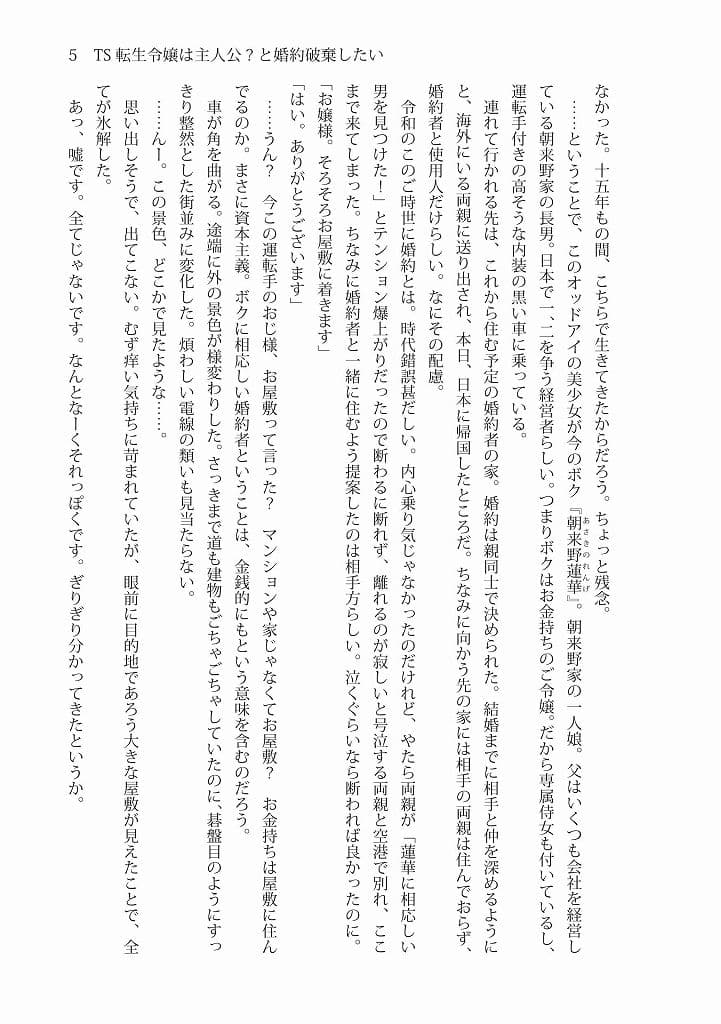 5 TS転生令嬢は主人公？と婚約破棄したい
なかった。十五年もの間、こちらで生きてきたからだろう。ちょっと残念。
……ということで、このオッドアイの美少女が今のボク『朝来野蓮華』。朝来野家の一人娘。父はいくつも会社を経営し
あさきのれんげ
ている朝来野家の長男。日本で一、二を争う経営者らしい。つまりボクはお金持ちのご令嬢。だから専属侍女も付いているし、
運転手付きの高そうな内装の黒い車に乗っている。
連れて行かれる先は、これから住む予定の婚約者の家。婚約は親同士で決められた。結婚までに相手と仲を深めるように
と、海外にいる両親に送り出され、本日、日本に帰国したところだ。ちなみに向かう先の家には相手の両親は住んでおらず、
婚約者と使用人だけらしい。なにその配慮。
令和のこのご時世に婚約とは。時代錯誤甚だしい。内心乗り気じゃなかったのだけれど、やたら両親が「蓮華に相応しい
男を見つけた！」とテンション爆上がりだったので断わるに断れず、離れるのが寂しいと号泣する両親と空港で別れ、ここ
まで来てしまった。ちなみに婚約者と一緒に住むよう提案したのは相手方らしい。泣くぐらいなら断われば良かったのに。
「お嬢様。そろそろお屋敷に着きます」
「はい。ありがとうございます」
……うん？　今この運転手のおじ様、お屋敷って言った？　マンションや家じゃなくてお屋敷？　お金持ちは屋敷に住ん
でるのか。まさに資本主義。ボクに相応しい婚約者ということは、金銭的にもという意味を含むのだろう。
車が角を曲がる。途端に外の景色が様変わりした。さっきまで道も建物もごちゃごちゃしていたのに、碁盤目のようにすっ
きり整然とした街並みに変化した。煩わしい電線の類いも見当たらない。
……んー。この景色、どこかで見たような……。
思い出しそうで、出てこない。むず痒い気持ちに苛まれていたが、眼前に目的地であろう大きな屋敷が見えたことで、全
てが氷解した。
あっ、嘘です。全てじゃないです。なんとなーくそれっぽくです。ぎりぎり分かってきたというか。